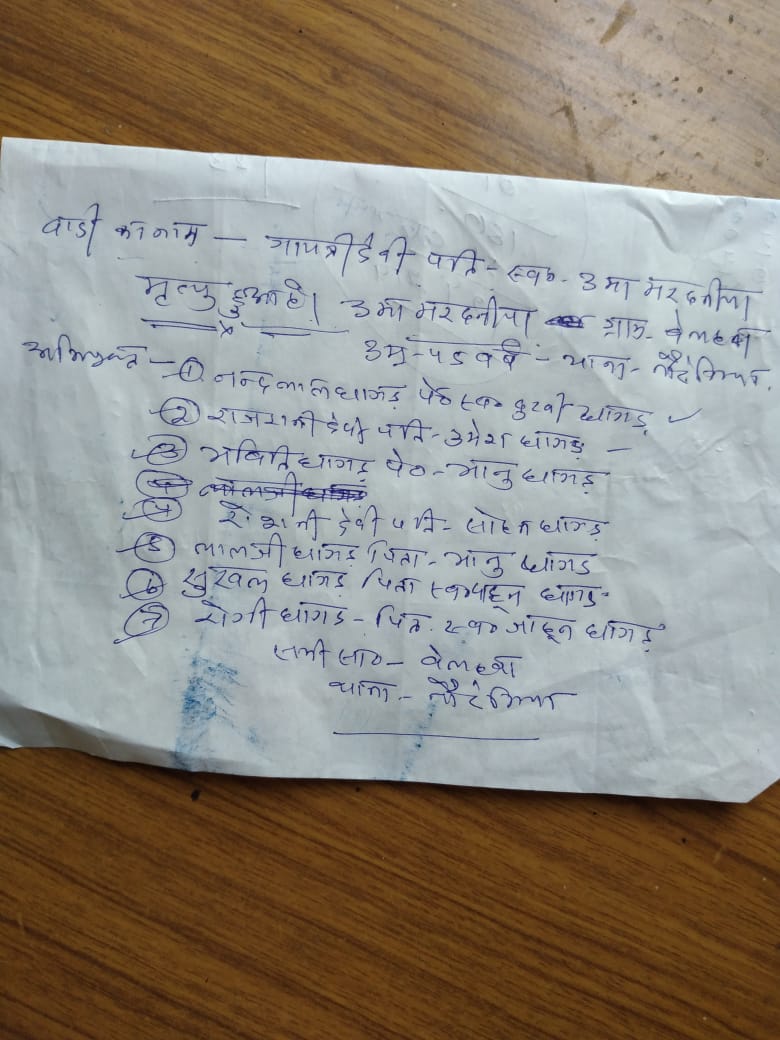 वादी का नाम — गायत्री देवी पति - स्व० उमा मरदनीया
मृत्यु हुआ है। उमा मरदनीया ग्राम - बेलहवा
उम्र - 55 वर्ष - थाना -
अभियुक्त — ① नन्दलाल धागड़ पे० स्व० धागड़ ✓
② राजमती देवी पति - उमेश धागड़ —
③ धागड़ पे० - भानु धागड़
4 रोशनी देवी पति - सोहन धागड़
⑤ लालजी धागड़ पिता - भानु धागड़
⑥ सुखल धागड़ पिता स्व० धागड़
⑦ योगी धागड़ - पिता. स्व० धागड़
सभी सा० - बेलहवा
थाना -